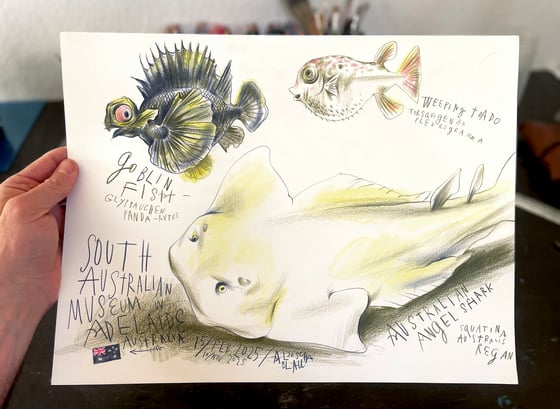 GOBLIN
FISH -
GLYPTAUCHEN
PANDA-RATUS
WEEPING TOADO
TORQUIGENER
PLEUROGRAMMA
SOUTH
AUSTRALIAN
MUSEUM IN
ADELAIDE
AUSTRALIA
15/FEB 2025/
AUSTRALIAN
ANGEL SHARK
SQUATINA
AUSTRALIS
REGAN